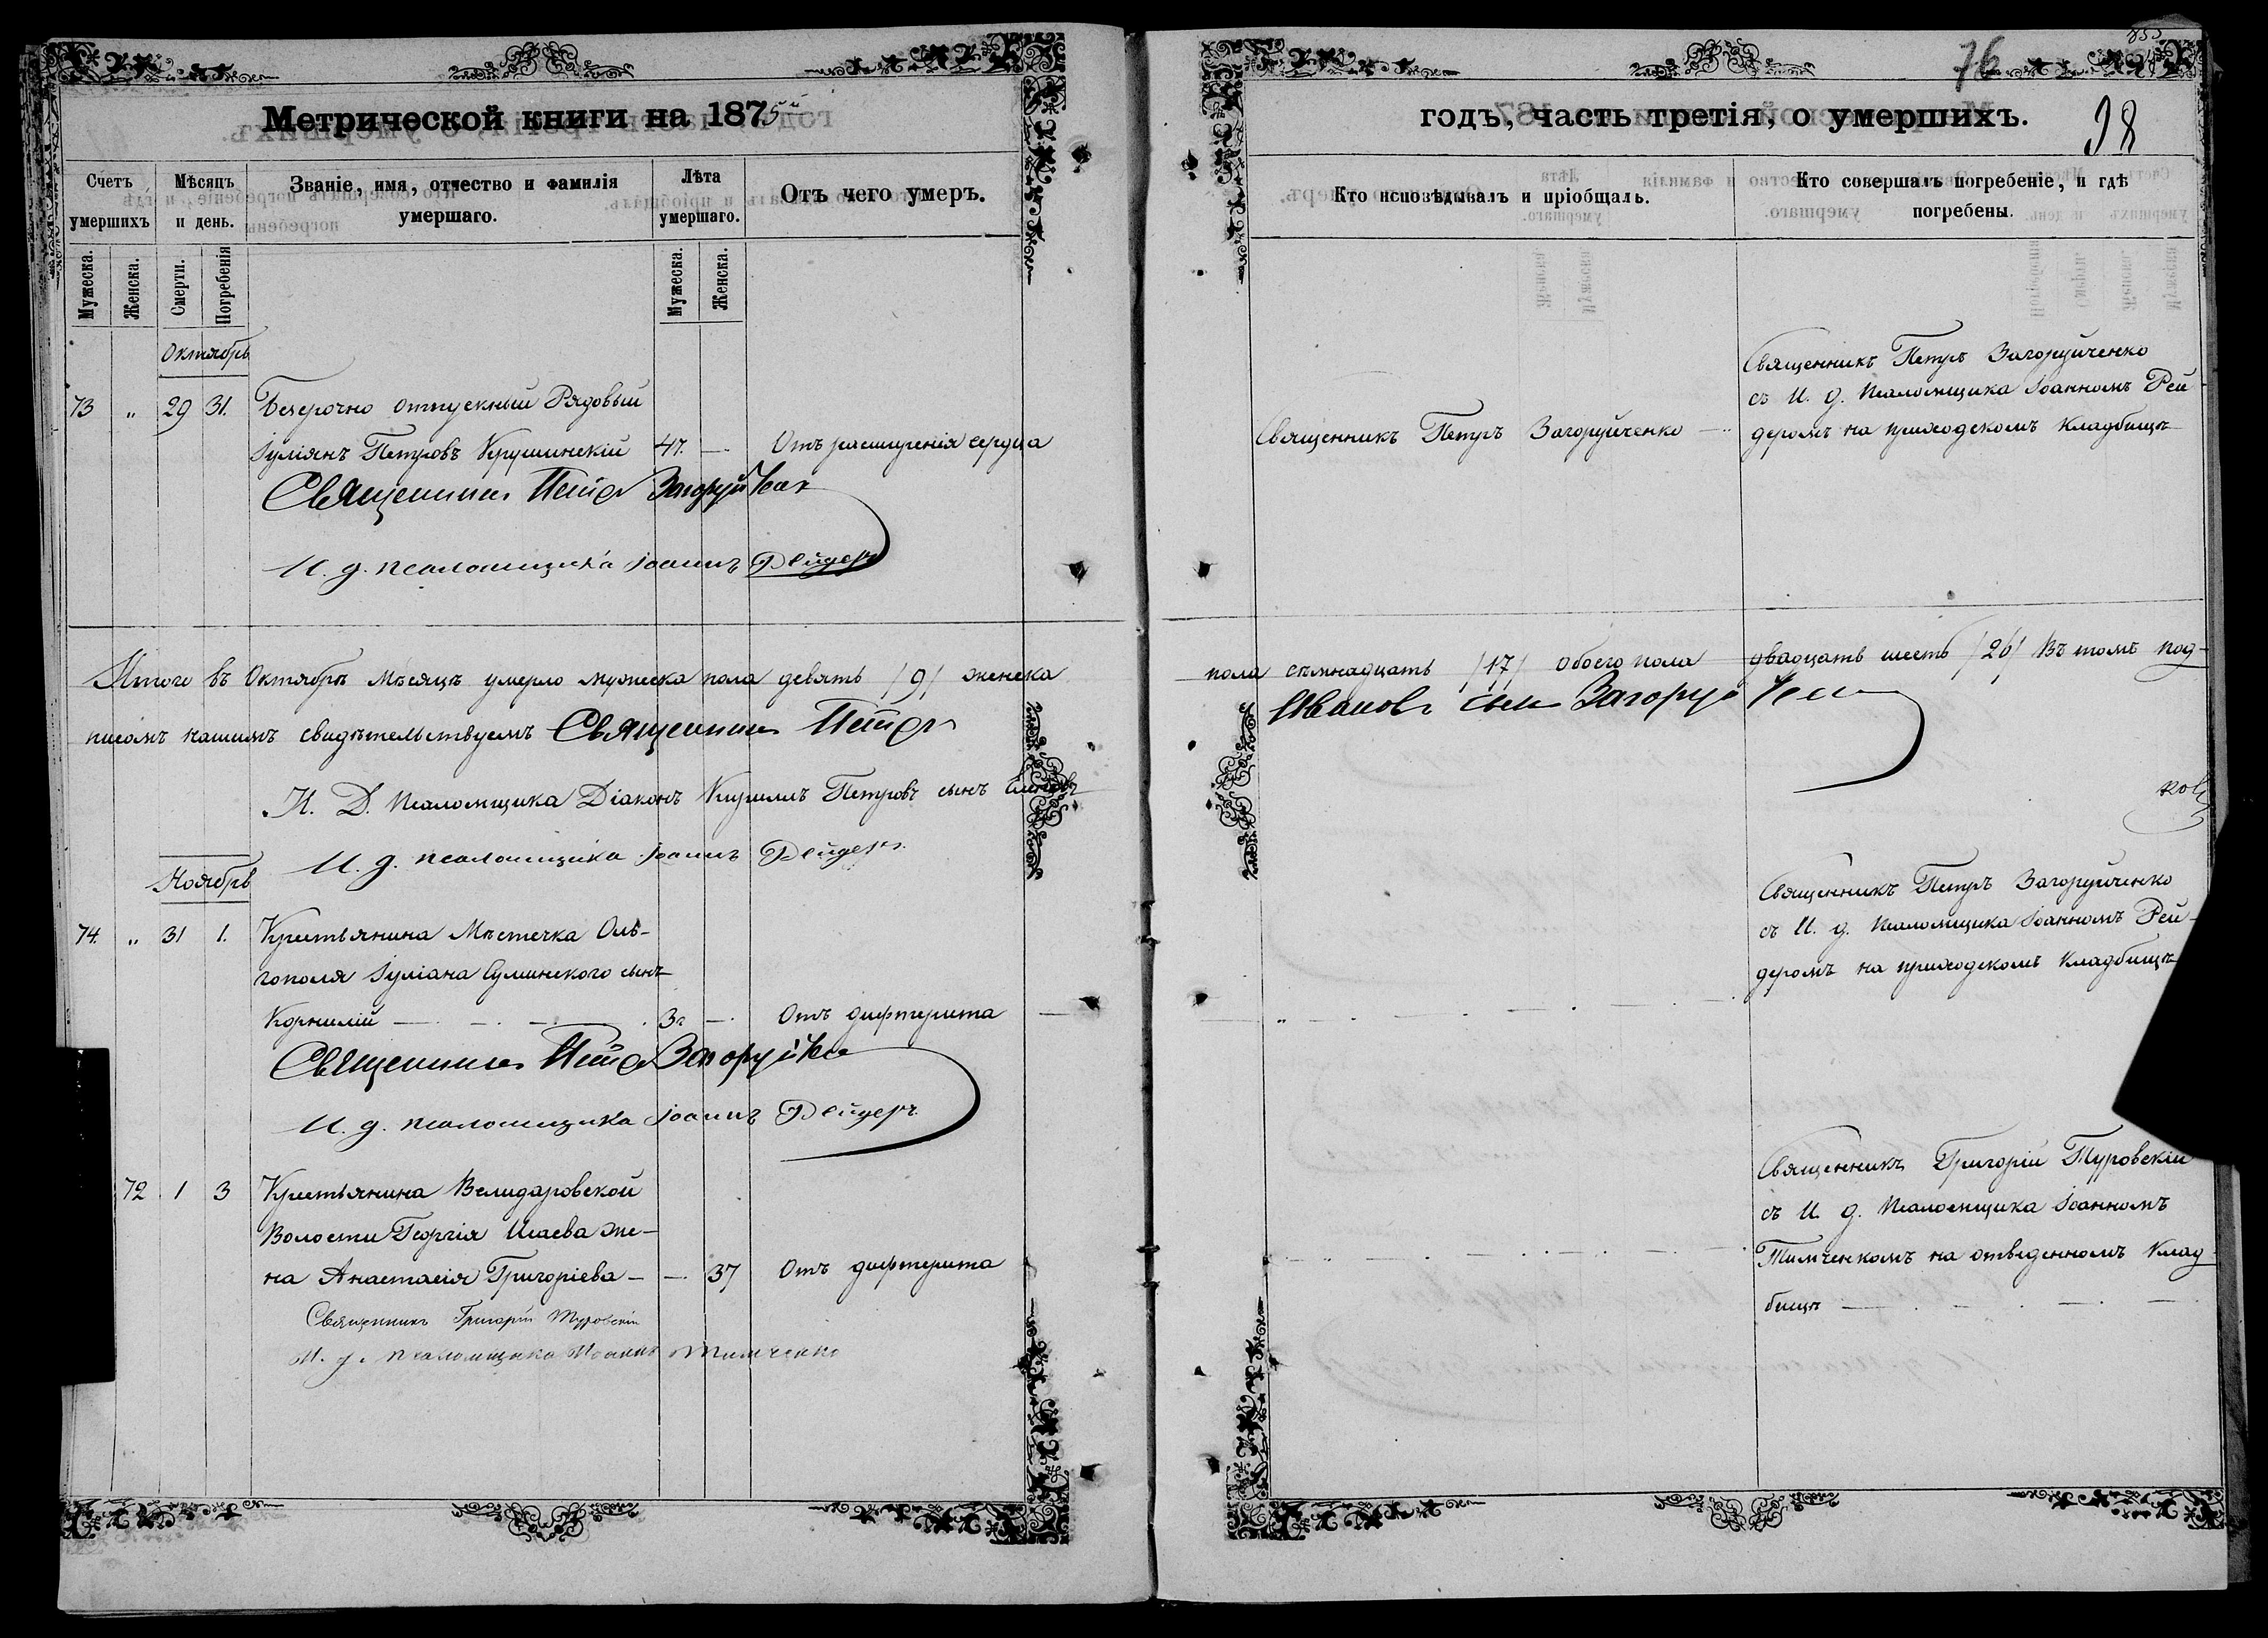 855
76
98
Метрической книги на 1875й
годъ, часть третія, о умершихъ.
Счетъ умершихъ
Мѣсяцъ и день.
Званіе, имя, отчество и фамилія умершаго.
Лѣта умершаго.
Отъ чего умеръ.
Кто исповѣдывалъ и пріобщалъ.
Кто совершалъ погребеніе, и гдѣ погребены.
Мужеска.
Женска.
Смерти.
Погребенія
Мужеска.
Женска.
Октябрь
73 „ 29 31. Безсрочно отпускный Рядовый
Іуліянъ Петровъ Крушинскій 47. — Отъ расширенія сердца
Священникъ Петръ Загоруйченко
Священникъ Петръ Загоруйченко
съ И. д. Псаломщика Іоанномъ Рей
деромъ на приходскомъ кладбищѣ
Священникъ Петръ
И. д. псаломщика Іоаннъ Рейдеръ
Итого въ Октябрѣ мѣсяцѣ умерло мужеска пола девять /9/ женска
пола семнадцать /17/ обоего пола двадцать шесть /26/ Въ томъ под-
писомъ нашимъ свидѣтельствуемъ Священникъ Петръ
Ивановъ сынъ
И. Д. Псаломщика Діаконъ Кириллъ Петровъ сынъ
И. д. псаломщика Іоаннъ Рейдеръ.
Ноябрь
74. „ 31 1. Крестьянина Мѣстечка Оль-
гополя Іуліана Суминского сынъ
Корнилій — . — . — . 3г — . Отъ дифтерита —
Священникъ Петръ Загоруйченко
съ И. д. Псаломщика Іоанномъ Рей-
деромъ на приходскомъ кладбищѣ
Священникъ Петръ
И. д. псаломщика Іоаннъ Рейдеръ.
72. 1 3 Крестьянина Велидаровской
Волости Георгія Исаева же-
на Анастасія Григоріева — — 37 Отъ дифтерита
Священникъ Григорій Туровскій
съ И. д. Псаломщика Іоанномъ
Тимченкомъ на отведенномъ клад-
бищѣ — . — . — . —
Священникъ Григорій Туровскій
И. д. псаломщика Іоаннъ Тимченко